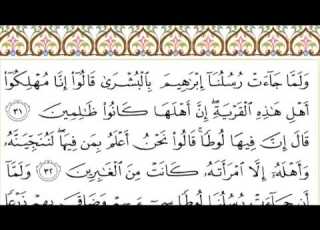 وَلَمَّا جَآءَتْ رُسُلُنَآ إِبْرَٰهِيمَ بِٱلْبُشْرَىٰ قَالُوٓا۟ إِنَّا مُهْلِكُوٓا۟
أَهْلِ هَٰذِهِ ٱلْقَرْيَةِ ۖ إِنَّ أَهْلَهَا كَانُوا۟ ظَٰلِمِينَ ٣١
قَالَ إِنَّ فِيهَا لُوطًا ۚ قَالُوا۟ نَحْنُ أَعْلَمُ بِمَن فِيهَا ۖ لَنُنَجِّيَنَّهُۥ
وَأَهْلَهُۥٓ إِلَّا ٱمْرَأَتَهُۥ كَانَتْ مِنَ ٱلْغَٰبِرِينَ ٣٢ وَلَمَّآ
أَن جَآءَتْ رُسُلُنَا لُوطًا سِىٓءَ بِهِمْ وَضَاقَ بِهِمْ ذَرْعًا